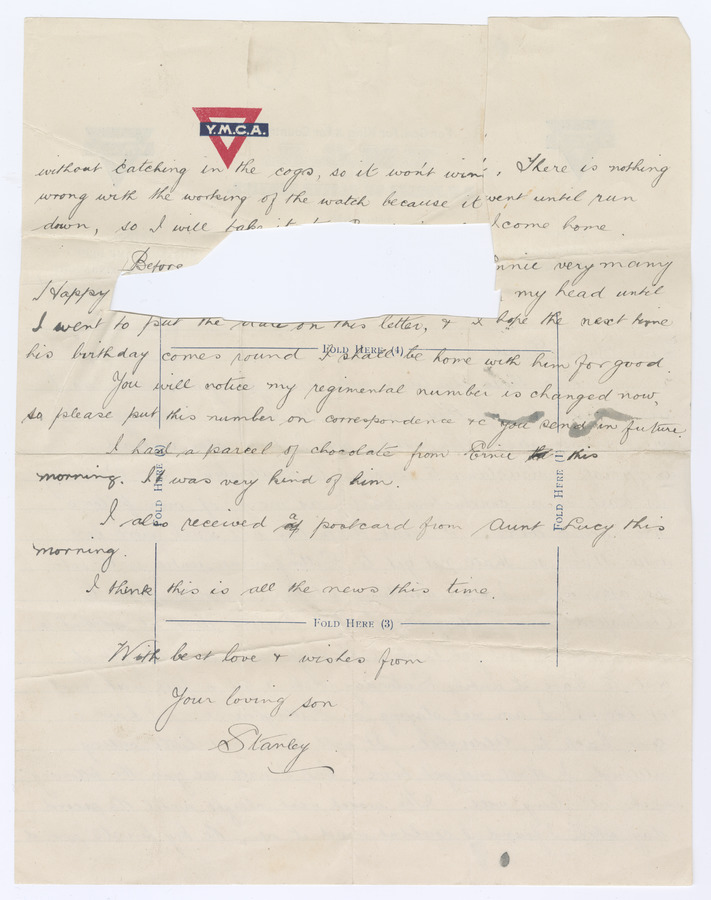 Y.M.C.A.
without catching in the cogs, so it won't win. There is nothing
wrong with the working of the watch because it went until run
down, so I will take it to come home.
Before nnie very many
Happy my head until
I went to put the date on this letter, & I hope the next time
his birthday comes round I shall be home with him for good.
Fold Here (4)
You will notice my regimental number is changed now,
so please put this number on correspondence &c you send in future.
I had a parcel of chocolate from Ernie this
morning. It was very kind of him.
Fold Here
Fold Here (1)
I also received a postcard from Aunt Lucy this
morning.
I think this is all the news this time.
Fold Here (3)
With best love & wishes from
Your loving son
Stanley